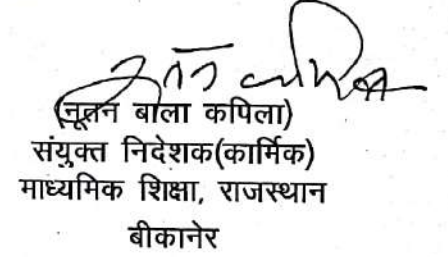 नूतन कपिला
(नूतन बाला कपिला)
संयुक्त निदेशक(कार्मिक)
माध्यमिक शिक्षा, राजस्थान
बीकानेर